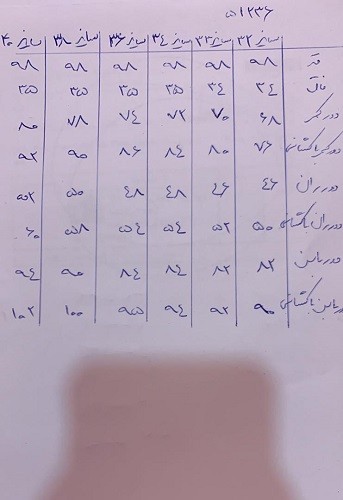 ۵۱۲۳۶
سایز ۳۲ سایز ۳۳ سایز ۳۴ سایز ۳۶ سایز ۳۸ سایز ۴۰
قد ۹۸ ۹۸ ۹۸ ۹۸ ۹۸ ۹۸
فاق ۳۴ ۳۴ ۳۵ ۳۵ ۳۵ ۳۵
دور کمر ۶۸ ۷۰ ۷۲ ۷۴ ۷۸ ۸۰
دور کمر با کشسانی ۷۶ ۸۰ ۸۴ ۸۶ ۹۰ ۹۲
دور ران ۴۶ ۴۶ ۴۸ ۴۸ ۵۰ ۵۲
دور ران با کشسانی ۵۰ ۵۲ ۵۴ ۵۴ ۵۸ ۶۰
دور باسن ۸۲ ۸۲ ۸۴ ۸۴ ۹۰ ۹۴
دور باسن با کشسانی ۹۰ ۹۲ ۹۴ ۹۵ ۱۰۰ ۱۰۲